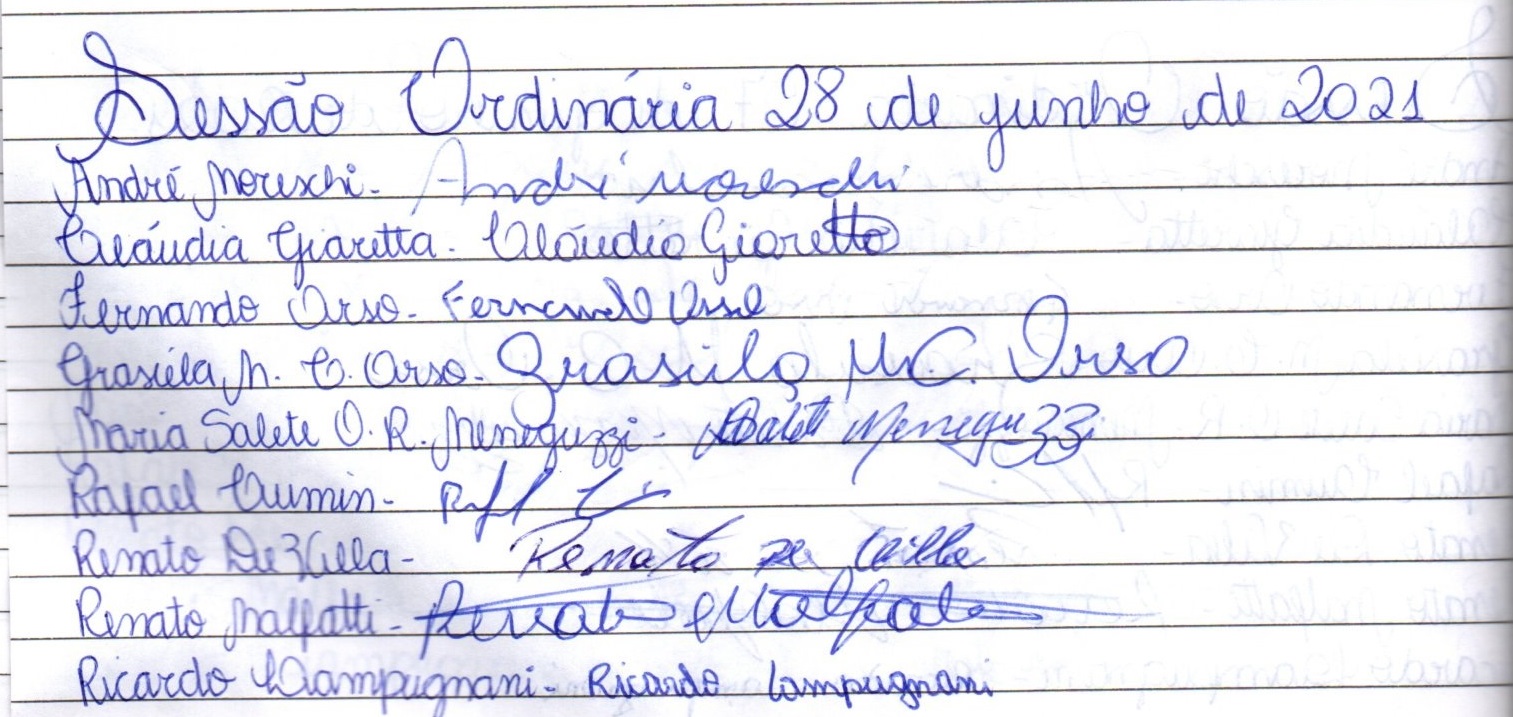 Sessão Ordinária 28 de junho de 2021
André Moreschi - André Moreschi
Cláudia Giaretta - Cláudia Giaretta
Fernando Orso - Fernando Orso
Grasiéla M. C. Orso - Grasiela M.C. Orso
Maria Salete O. R. Meneguzzi - Salete Meneguzzi
Rafael Cumin -
Renato De Zilla - Renato
Renato Malfatti - Renato Malfatti
Ricardo Campugnani - Ricardo Campugnani